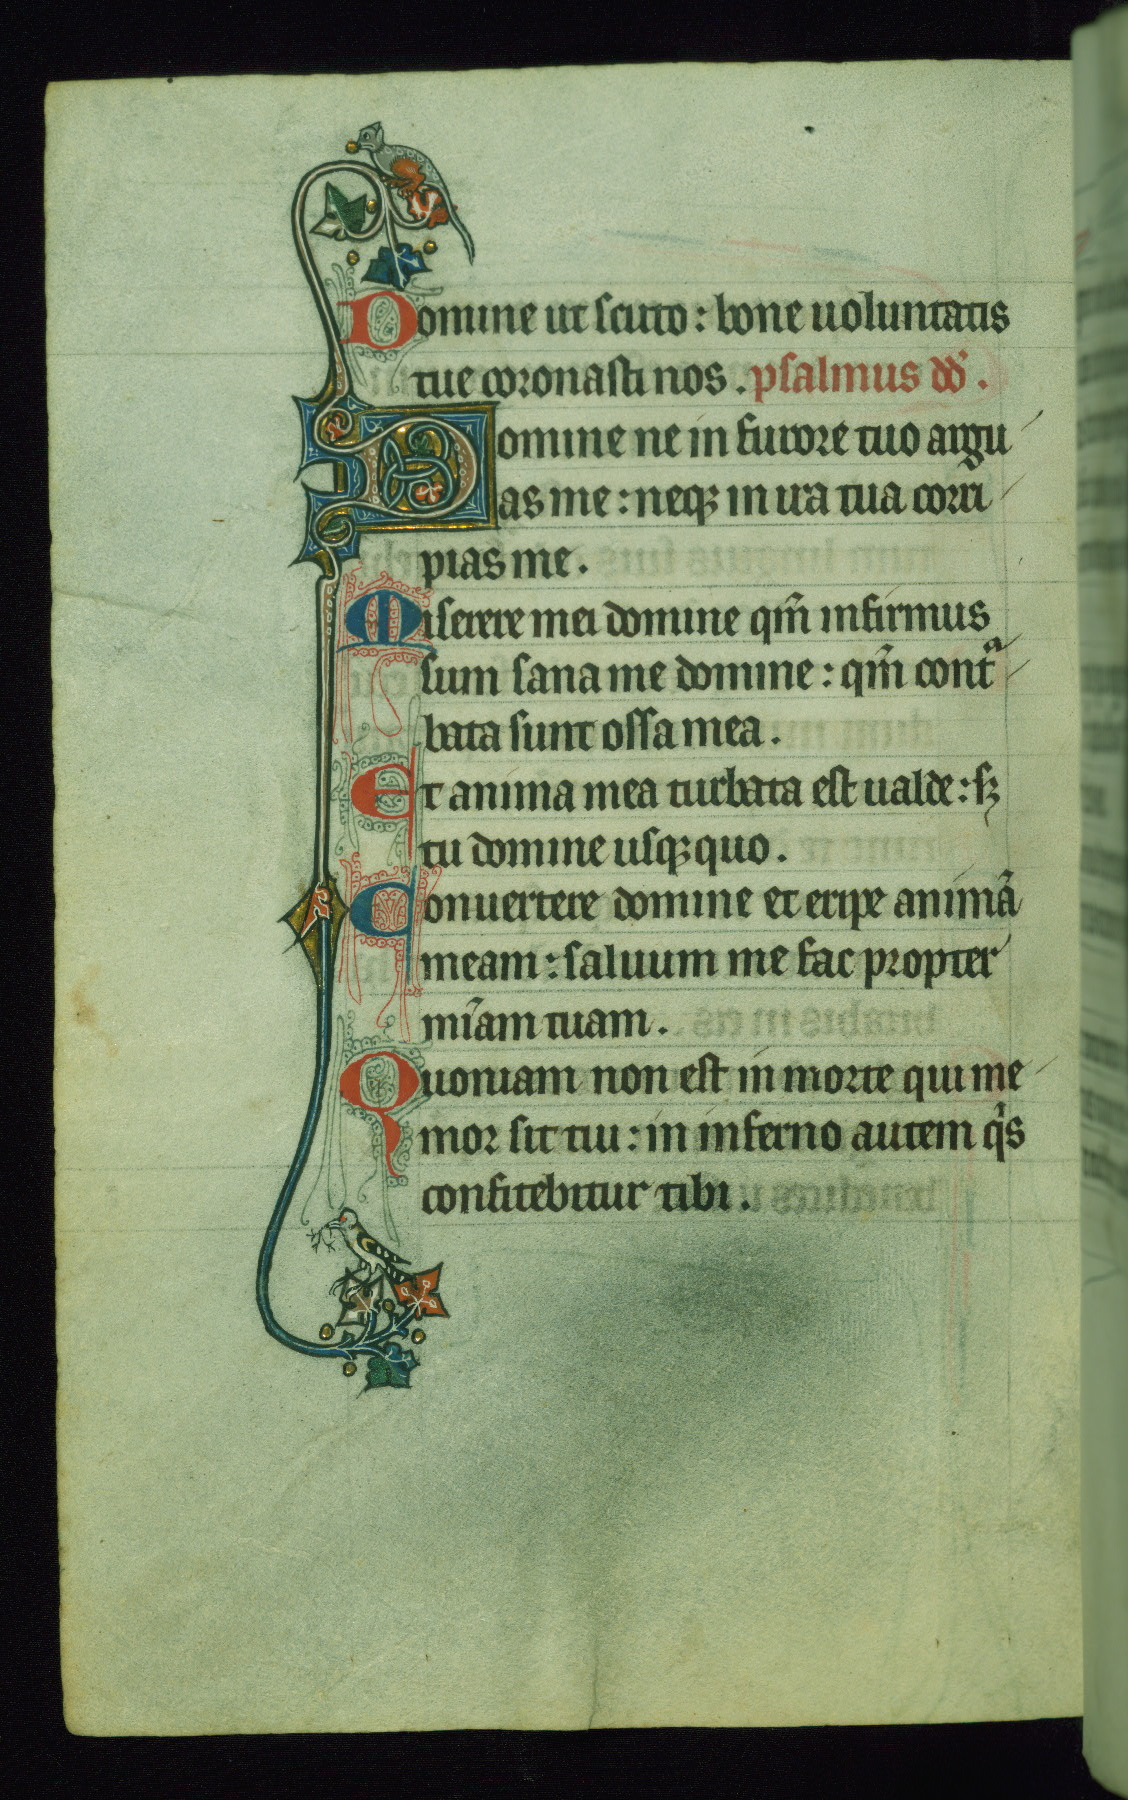 Domine ut scuto : bone uoluntatis
tue coronasti nos . psalmus dd̕ .
Domine ne in furore tuo argu
as me : neqꝫ in ira tua corri
pias me .
Miserere mei domine qm̃ infirmus
sum sana me domine : qm̃ contᷓ
bata sunt ossa mea .
Et anima mea turbata est ualde : sꝫ
tu domine usqꝫ quo .
Conuertere domine et eripe animã
meam : saluum me fac propter
mĩam tuam .
Quoniam non est in morte qui me
mor sit tiu : in inferno autem qͥs
confitebitur tibi .